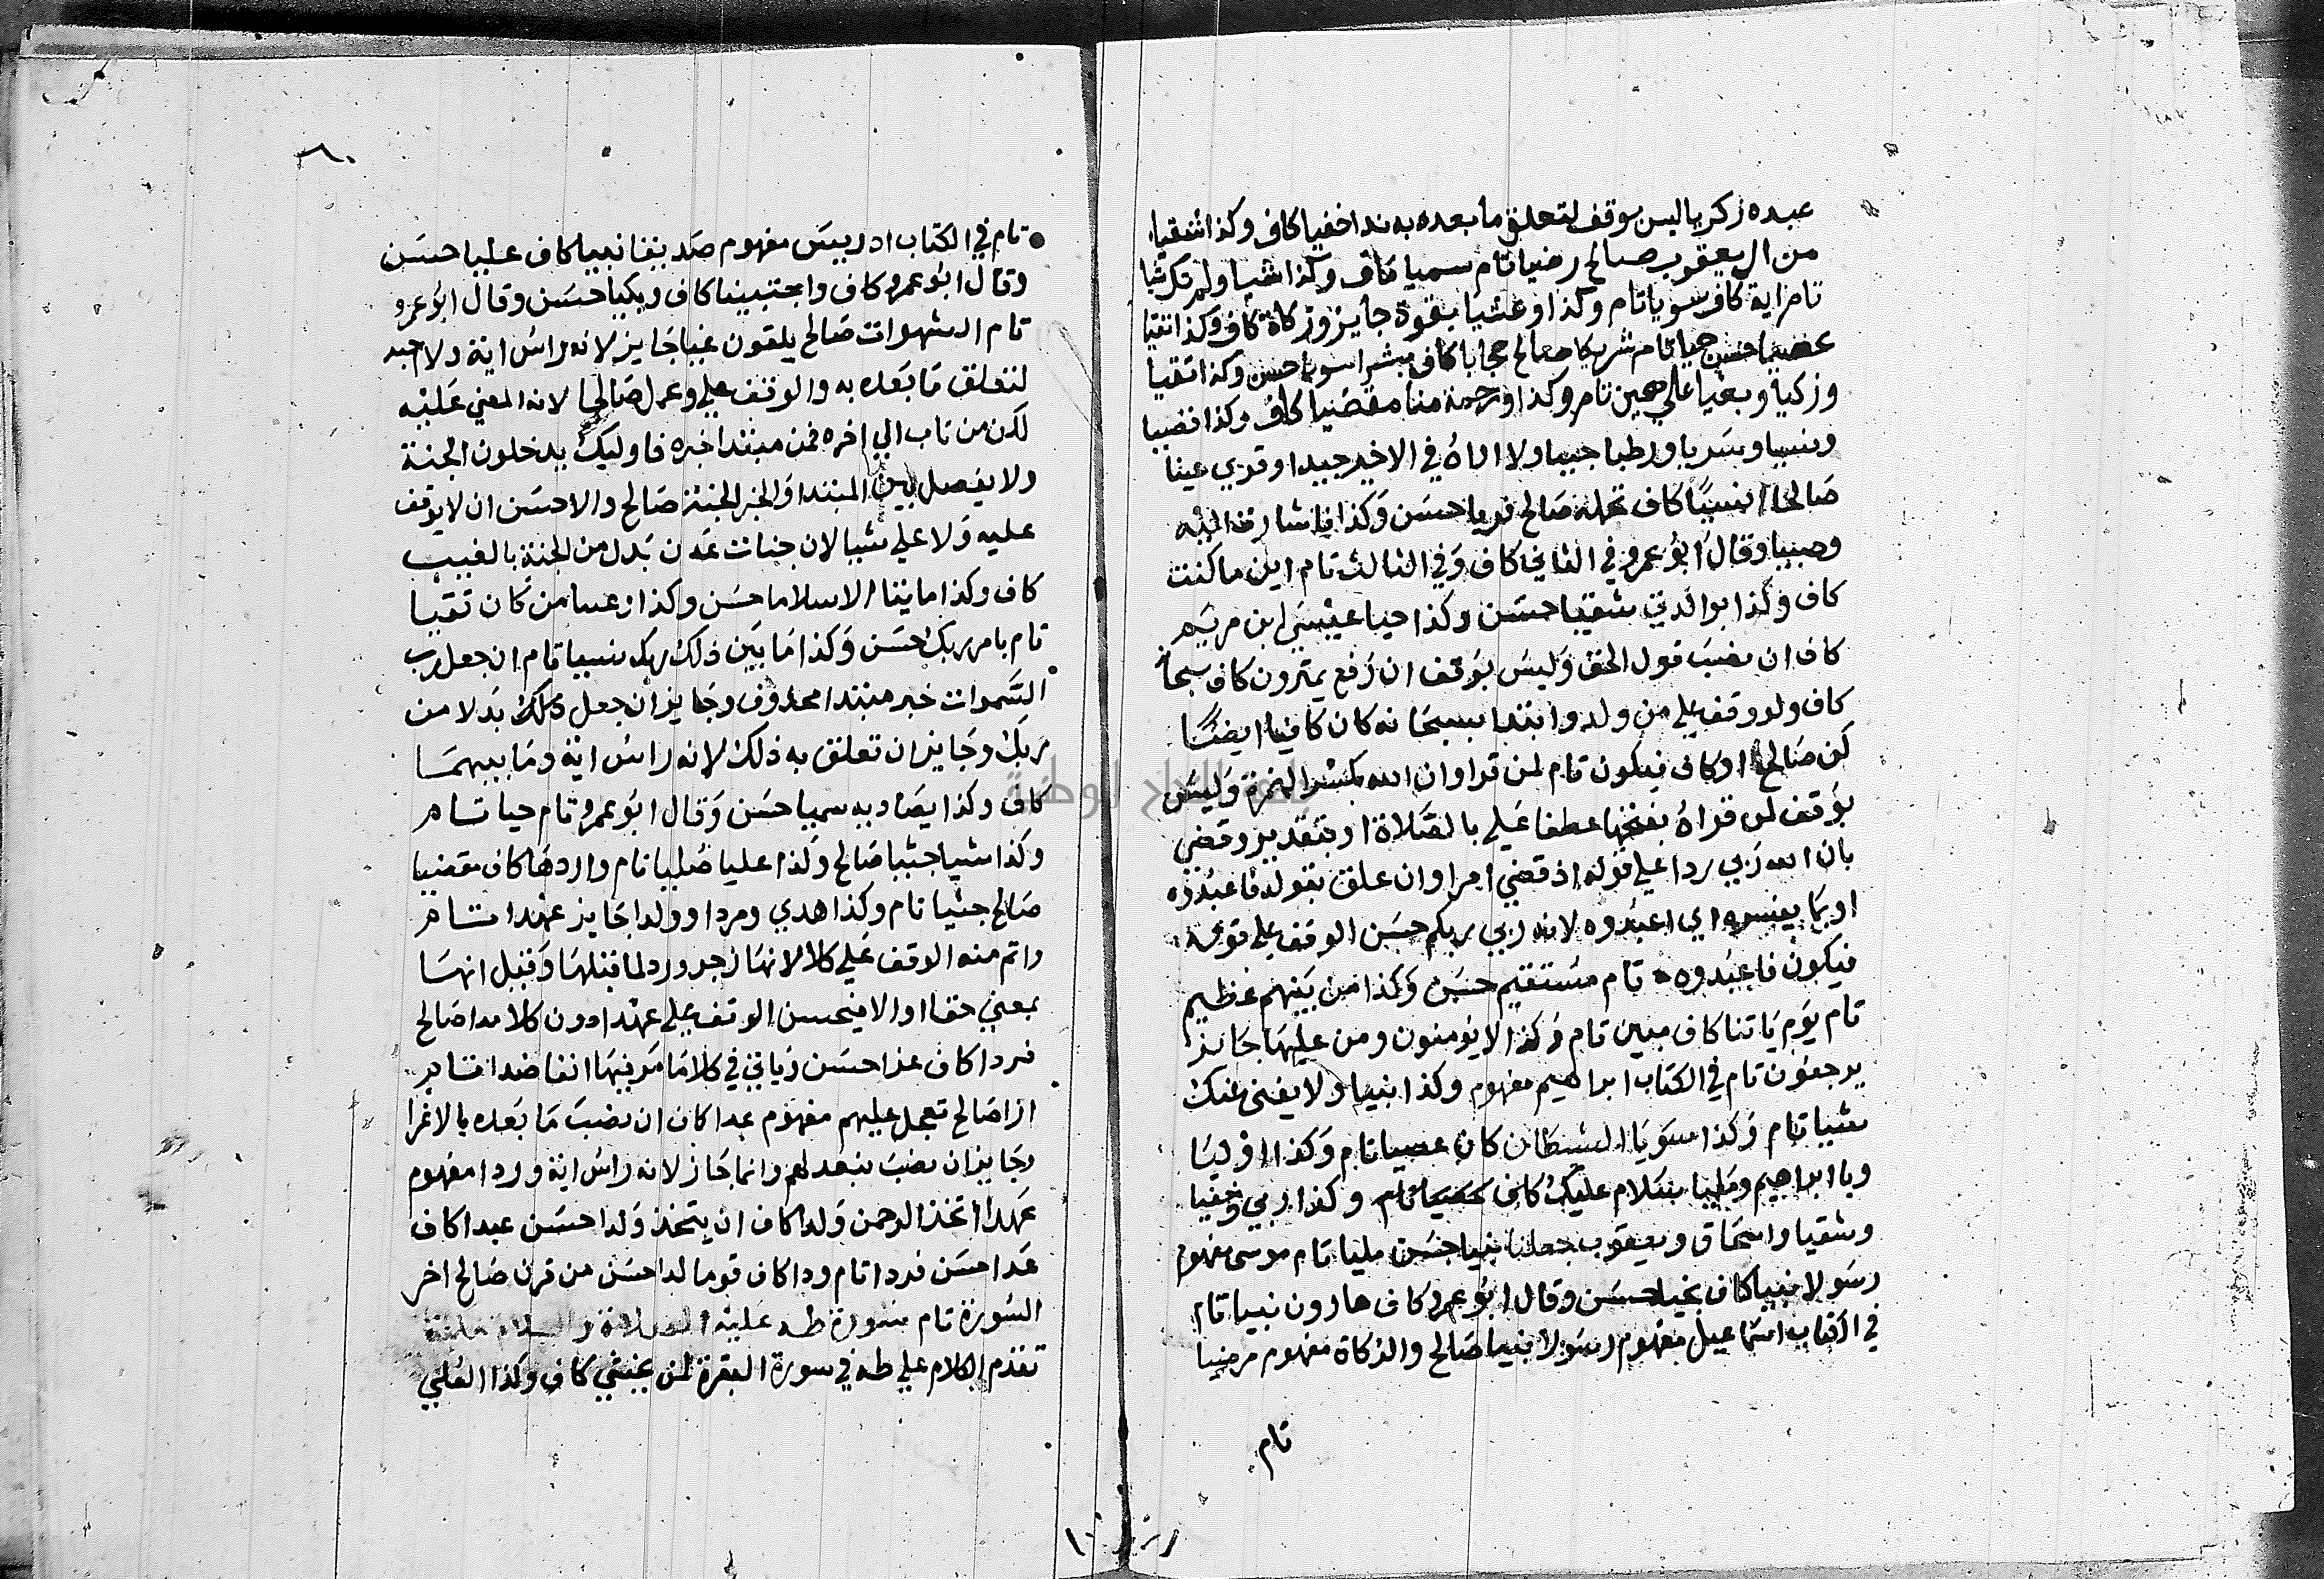 عبده زكريا ليس بوقف لتعلق ما بعده به ندا خفيا كاف وكذا شقيا
من ال يعقوب صالح رضيا تام سميا كاف وكذا شيا ولم تك شيا
تام اية كاف سويا تام وكذا وعشيا بقوة جايز وزكاة كاف وكذا تقيا
عصيا حسن حيا تام شرقيا صالح حجابا كاف بشرا سويا حسن وكذا تقيا
وزكيا وبغيا علي هين تام وكذا ورحمة منا مقضيا كاف وكذا قصيا
ونسيا وسريا ورطبا جنيا ولا اراه في الاخير جيدا وقري عينا
صالح انسيا كاف تحمله صالح فريا حسن وكذا فاشارت اليه
وصبيا وقال ابو عمرو في الثاني كاف وفي الثالث تام اين ما كنت
كاف وكذا بوالدتي شقيا حسن وكذا حيا عيسي ابن مريم
كاف ان نصب قول الحق وليس بوقف ان رفع يمترون كاف سبحا
كاف ولو وقف علي من ولد وابتدا بسبحانه كان كافيا ايضا
كن صالح او كاف فيكون تام لمن قرا وان الله بكسر الهمزة وليس
بوقف لمن قراه بفتحها عطفا علي بالصلاة او بتقدير وقضي
بان الله ربي ردا علي قوله اذ قضي امرا وان علق بقوله فاعبدوه
او بما يفسره اي اعبدوه لانه ربي ربكم حسن الوقف علي قوله
فيكون فاعبدوه تام مستقيم حسن وكذا من بينهم عظيم
تام يوم ياتنا كاف مبين تام وكذا لا يومنون ومن عليها جايز
يرجعون تام في الكتاب ابراهيم مفهوم وكذا نبيا ولا يغني عنك
شيا تام وكذا سويا الشيطان كان عصيا تام وكذا وليا
ويا ابراهيم ومليا سلام عليك كاف حفيا تام وكذا ربي وحفيا
وشقيا واسحاق ويعقوب جعلنا نبيا حسن مليا تام موسي مفهوم
رسولا نبيا كاف نجيا حسن وقال ابو عمرو كاف هارون نبيا تام
في الكتاب اسماعيل مفهوم رسولا نبيا صالح والزكاة مفهوم مرضيا
تام
٦٠
تام في الكتاب ادريس مفهوم صديقا نبيا كاف عليا حسن
وقال ابو عمرو كاف واجتبينا كاف وبكيا حسن وقال ابو عمرو
تام الشهوات صالح يلقون غيا جايز لانه راس اية ولا احبه
لتعلق ما بعده به والوقف علي وعمل صالحا لانه المعني عليه
لكن من تاب الي اخره فمن مبتدا خبره فاوليك يدخلون الجنة
ولا يفصل بين المبتدا والخبر الجنة صالح والاحسن ان لا يوقف
عليه ولا علي شيا لان جنات عدن بدل من الجنة بالغيب
كاف وكذا ماتيا الا سلاما حسن وكذا وعشيا من كان تقيا
تام بامر ربك حسن وكذا ما بين ذلك ربك نسيا تام ان جعل رب
السموات خبر مبتدا محذوف وجايز ان جعل ذلك بدلا من
ربك وجايز ان تعلق به ذلك لانه راس اية وما بينهما
كاف وكذا لعبادته سميا حسن وقال ابو عمرو تام حيا تام
وكذا شيا جثيا صالح وكذا عتيا صليا تام واردها كاف مقضيا
صالح جثيا تام وكذا هدي ومردا وولدا جايز عهدا تام
واتم منه الوقف علي كلا لانها زجر ورد لما قبلها وقيل انها
بمعني حقا او الا فيحسن الوقف علي عهدا دون كلا مدا صالح
فردا كاف عزا حسن وياتي في كلا ما مر فيها انفا ضدا تام
ازا صالح تعجل عليهم مفهوم عدا كاف ان نصب ما بعده بالاغرا
وجايز ان نصب بنعد لهم وانما جاز لانه راس اية وردا مفهوم
عهدا اتخذ الرحمن ولدا كاف ان يتخذ ولدا حسن عبدا كاف
عدا حسن فردا تام ودا كاف قوما لدا حسن من قرن صالح اخر
السورة تام سورة طه عليه الصلاة والسلام
تقدم الكلام علي طه في سورة البقرة لمن يخشي كاف وكذا العلي